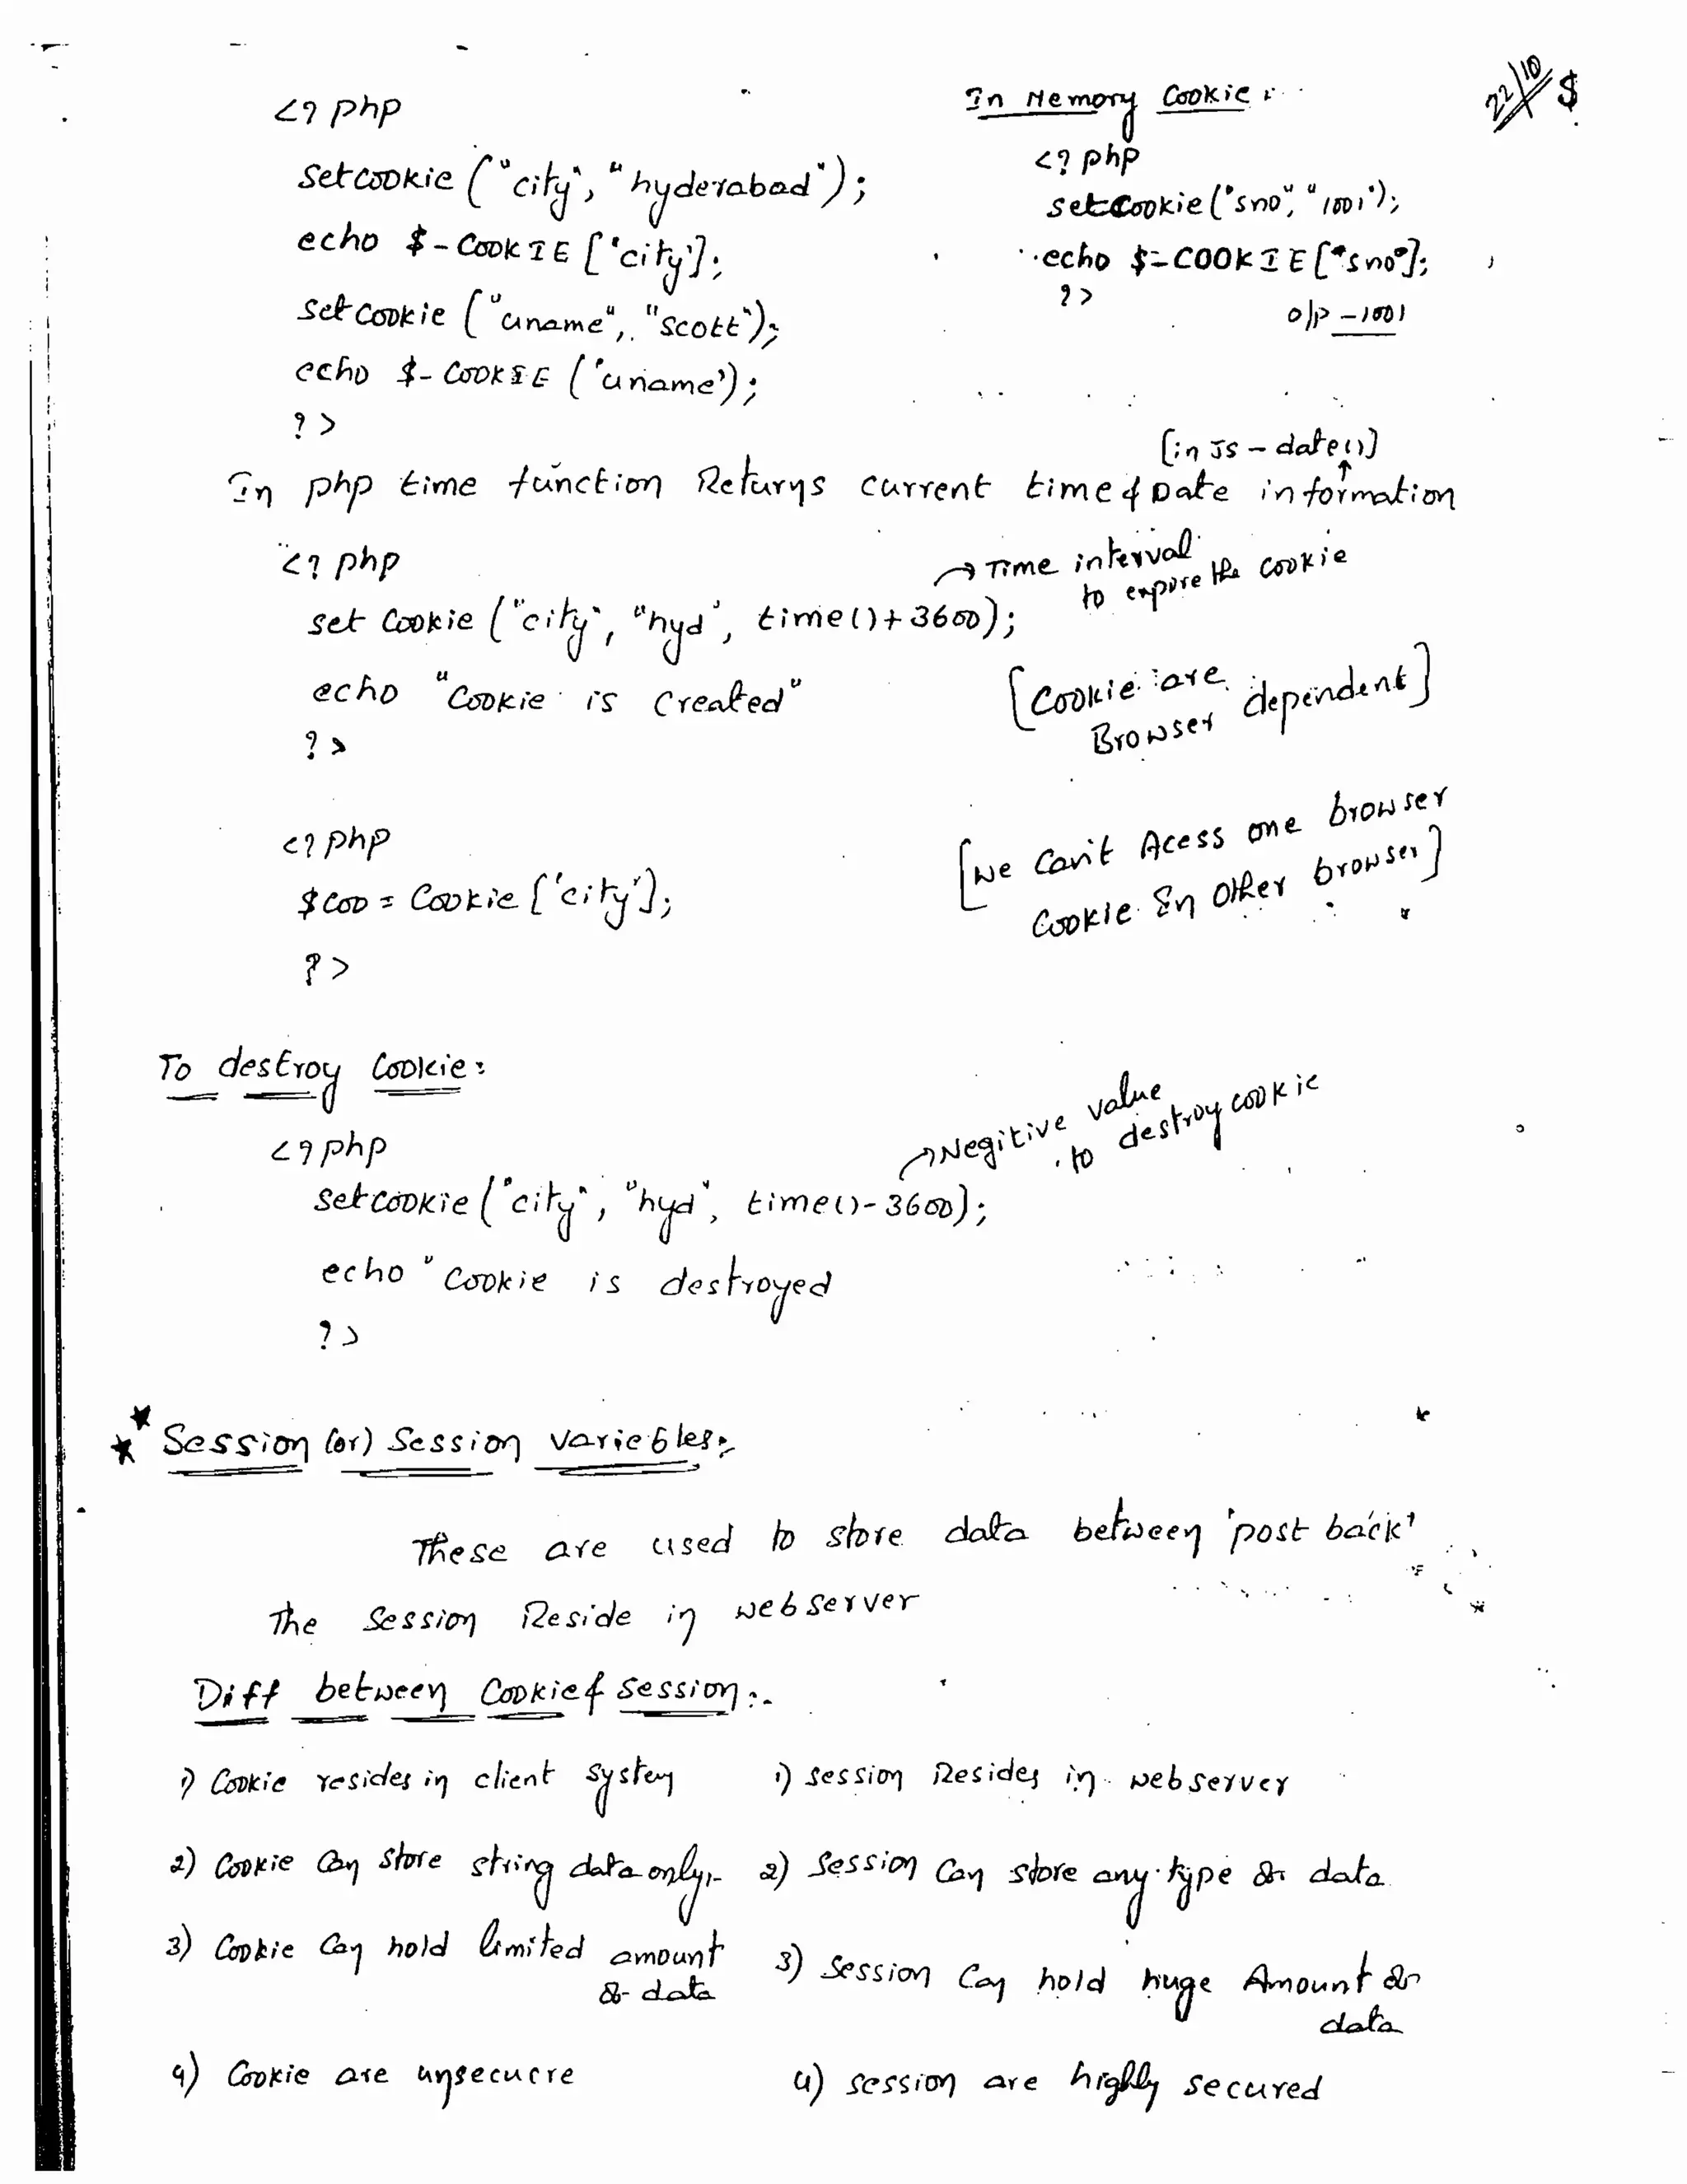 22/10 $
<? php
setcookie ("city", "hyderabad");
echo $-COOKIE ['city'];
setcookie ("uname", "scott");
echo $-COOKIE ('uname');
? >
In Memory Cookie :
<? php
setcookie ("sno", "1001");
echo $-COOKIE ["sno"];
? >
o/p - 1001
[in JS - date()]
In php time function Returns current time & Date information
<? php
set Cookie ("city", "hyd", time()+3600);
→ Time interval
to expore the cookie
echo "Cookie is Created"
? >
[Cookie are
Browser dependent]
<? php
$coo = Cookie ['city'];
? >
[We Can't Acess one browser
Cookie In Other browser]
To destroy Cookie :
<? php
setcookie ("city", "hyd", time()-3600);
→ Negitive value
to destroy cookie
echo "Cookie is destroyed
? >
Session (or) Session variebles :-
These are used to store data between 'post back'
The Session Reside in webserver
Diff between Cookie & Session :-
1) Cookie resides in client system
1) session Resides in webserver
2) Cookie Can store string data only.
2) Session Can store any type of data
3) Cookie Can hold limited amount
of data
3) Session Can hold huge Amount of
data
4) Cookie are unsecucre
4) session are highly secured